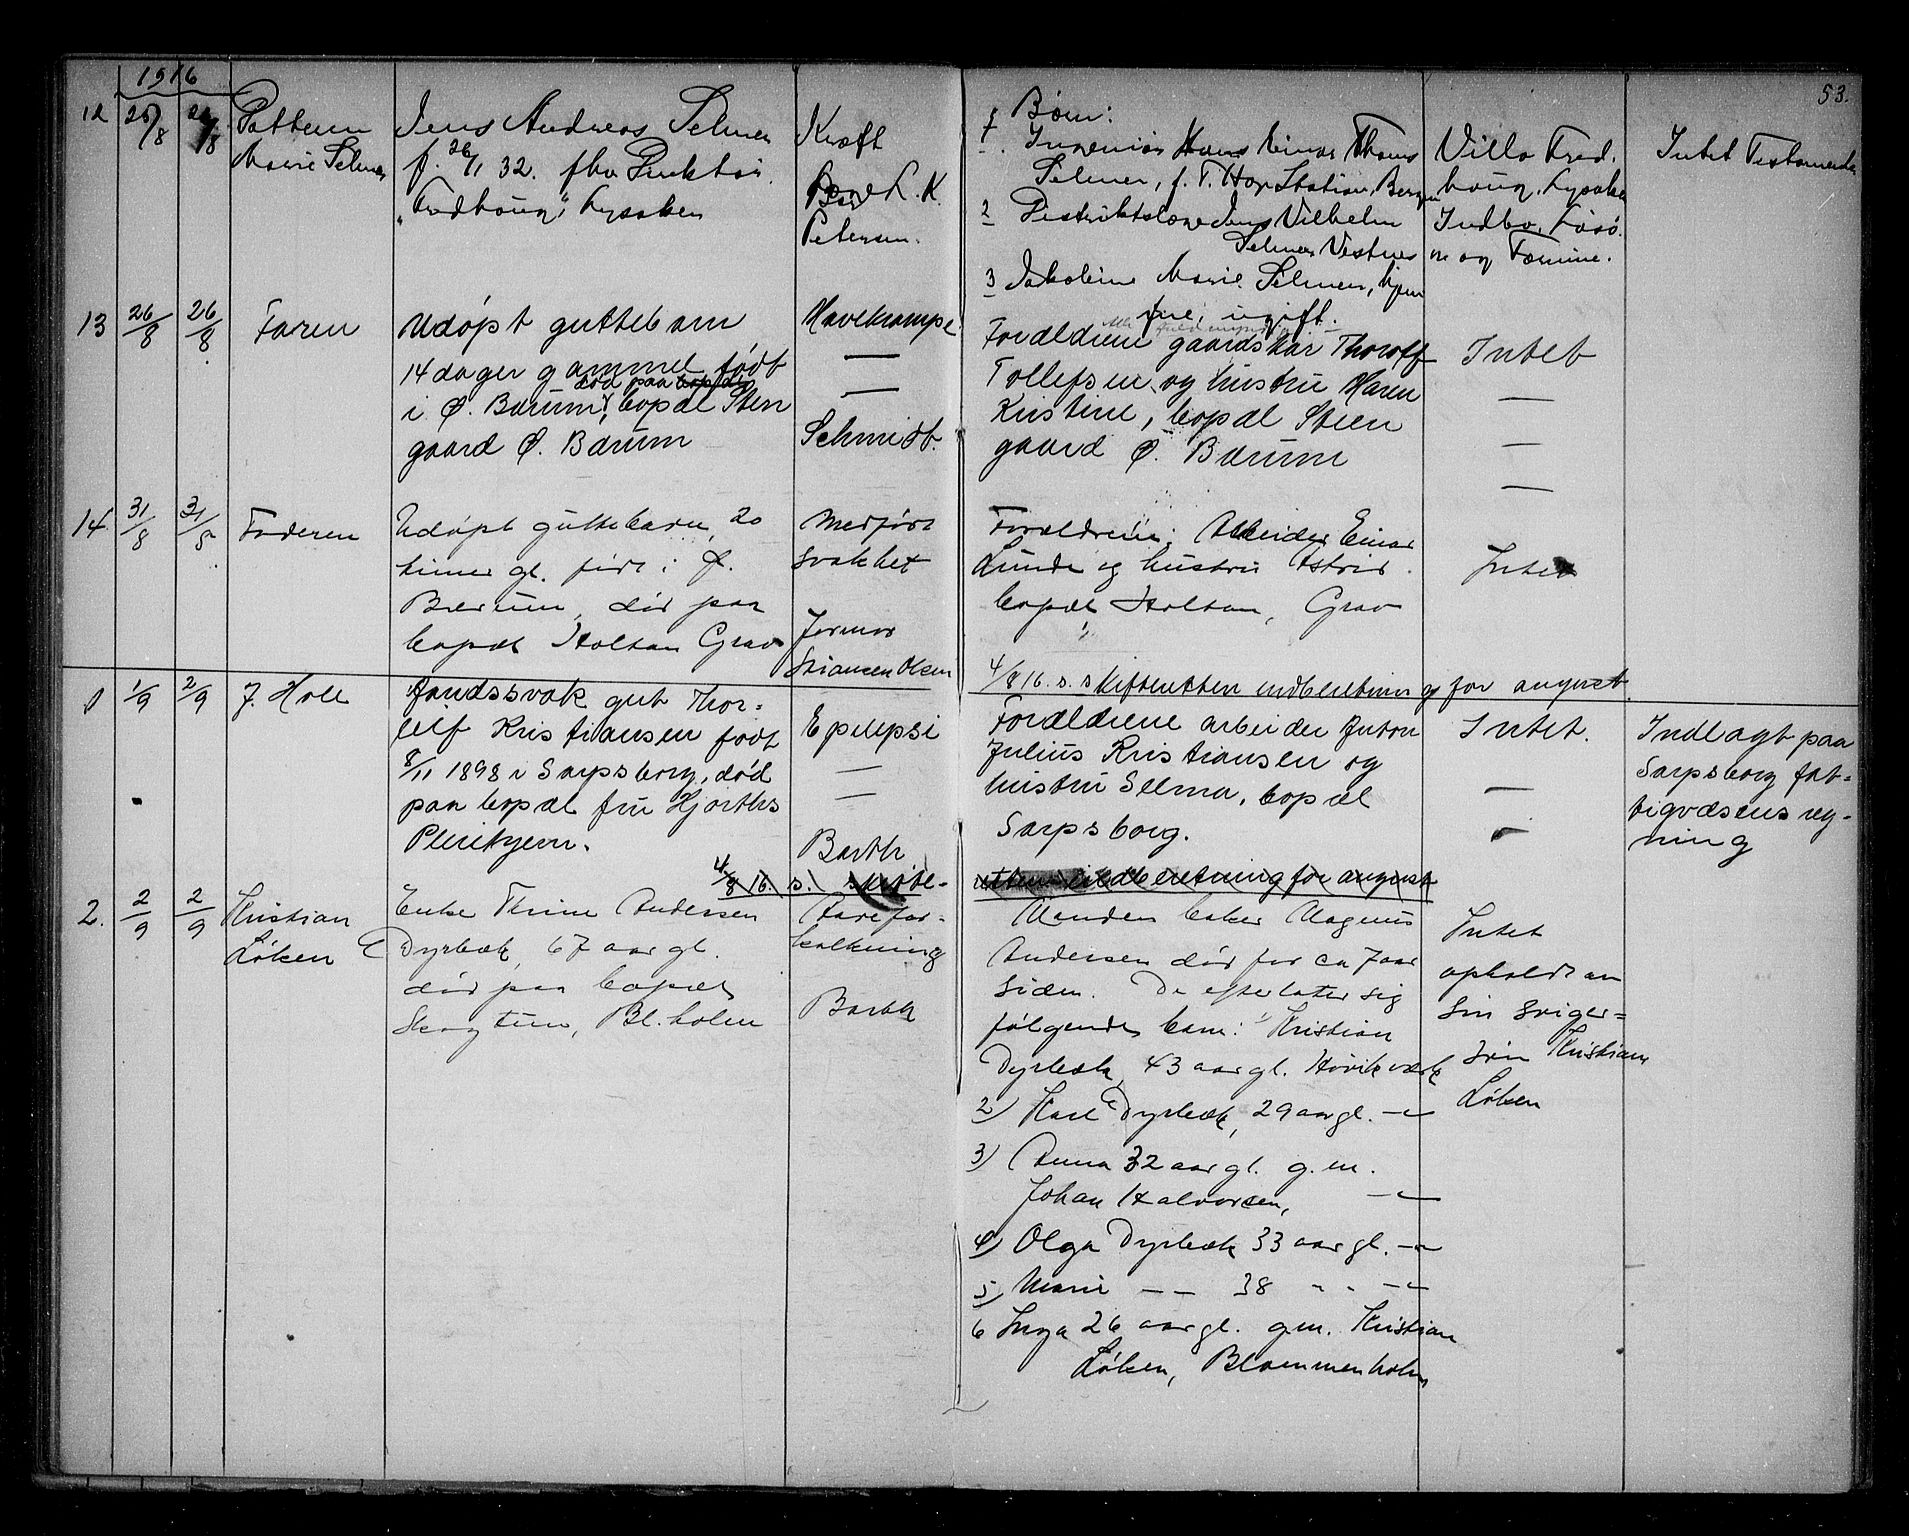 1916
53.
12 25/8 26/8 Datteren
Marie Selmer
Jens Andreas Selmer
f. 26/1 32. fhv.
"Fredhoug" Lysaker
Kræft
L. K.
Petersen.
Børn:
1. Ingeniør Hans Einar Thams
Selmer, f. T. Hop Station, Bergen
2 Distriktslæge Jens Vilhelm
Selmer, Vestnes
3 Jakobine Marie Selmer, hjem
me, ugift.
Villa Fred.
houg, Lysaker
Indbo, Løsø.
re og Formue.
Intet Testamente
13 26/8 26/8 Faren
Udøpt guttebarn
14 dager gammel født
død paa bopæl
i Ø. Bærum, bopæl Sten
gaard Ø. Bærum
Mavekrampe
—
—
Schmidt.
Forældrene gaardskar Thoroff
Tollefsen og hustru Maren
Kristine, bopæl Steen
gaard Ø. Bærum
Intet
—
—
—
14. 31/8 31/8 Faderen
Udøpt guttebarn, 20
timer gl. født i Ø.
Bærum, død paa
bopæl Holtan Grav
Medfødt
svakhet
Stiansen Olsen
Forældrene: Arbeider Einar
Lunde og hustru Astrid
bopæl Holtan, Grav
Intet
4/9 16. s. skifteretten indberetning for august.
1 1/9 2/9 J. Hole
Aandssvak gut Thor-
leif Kristiansen født
8/11 1898 i Sarpsborg, død
paa bopæl fru Hjorths
Pleiehjem.
Epilepsi
—
—
Barth
Forældrene arbeider Anton
Julius Kristiansen og
hustru Selma, bopæl
Sarpsborg.
Intet.
—
—
Indlagt paa
Sarpsborg fat-
tigvæsens reg-
ning
4/8 16. s. skifte-
retten indberetning for august
2. 2/9 2/9 Kristian
Løken
Enke Thrine Andersen
Dyrbæk, 67 aar gl.
død paa bopæl
Skogtun, Bl.holm
Aarefor-
kalkning
Barth
Manden baker Magnus
Andersen død for ca 7 aar
siden. De efterlater sig
følgende barn: 1) Kristian
Dyrbæk, 43 aar gl. Høvik værk
2) Karl Dyrbæk, 29 aar gl. —"—
3) Anna 32 aar gl. g.m.
Johan Halvorsen, —"—
4) Olga Dyrbæk 33 aar gl. —"—
5) Marie — — 38 " " —"—
6 Inga 26 aar gl. g.m. Kristian
Løken, Blommenholm
Intet
opholdt av
sin sviger-
søn Kristian
Løken